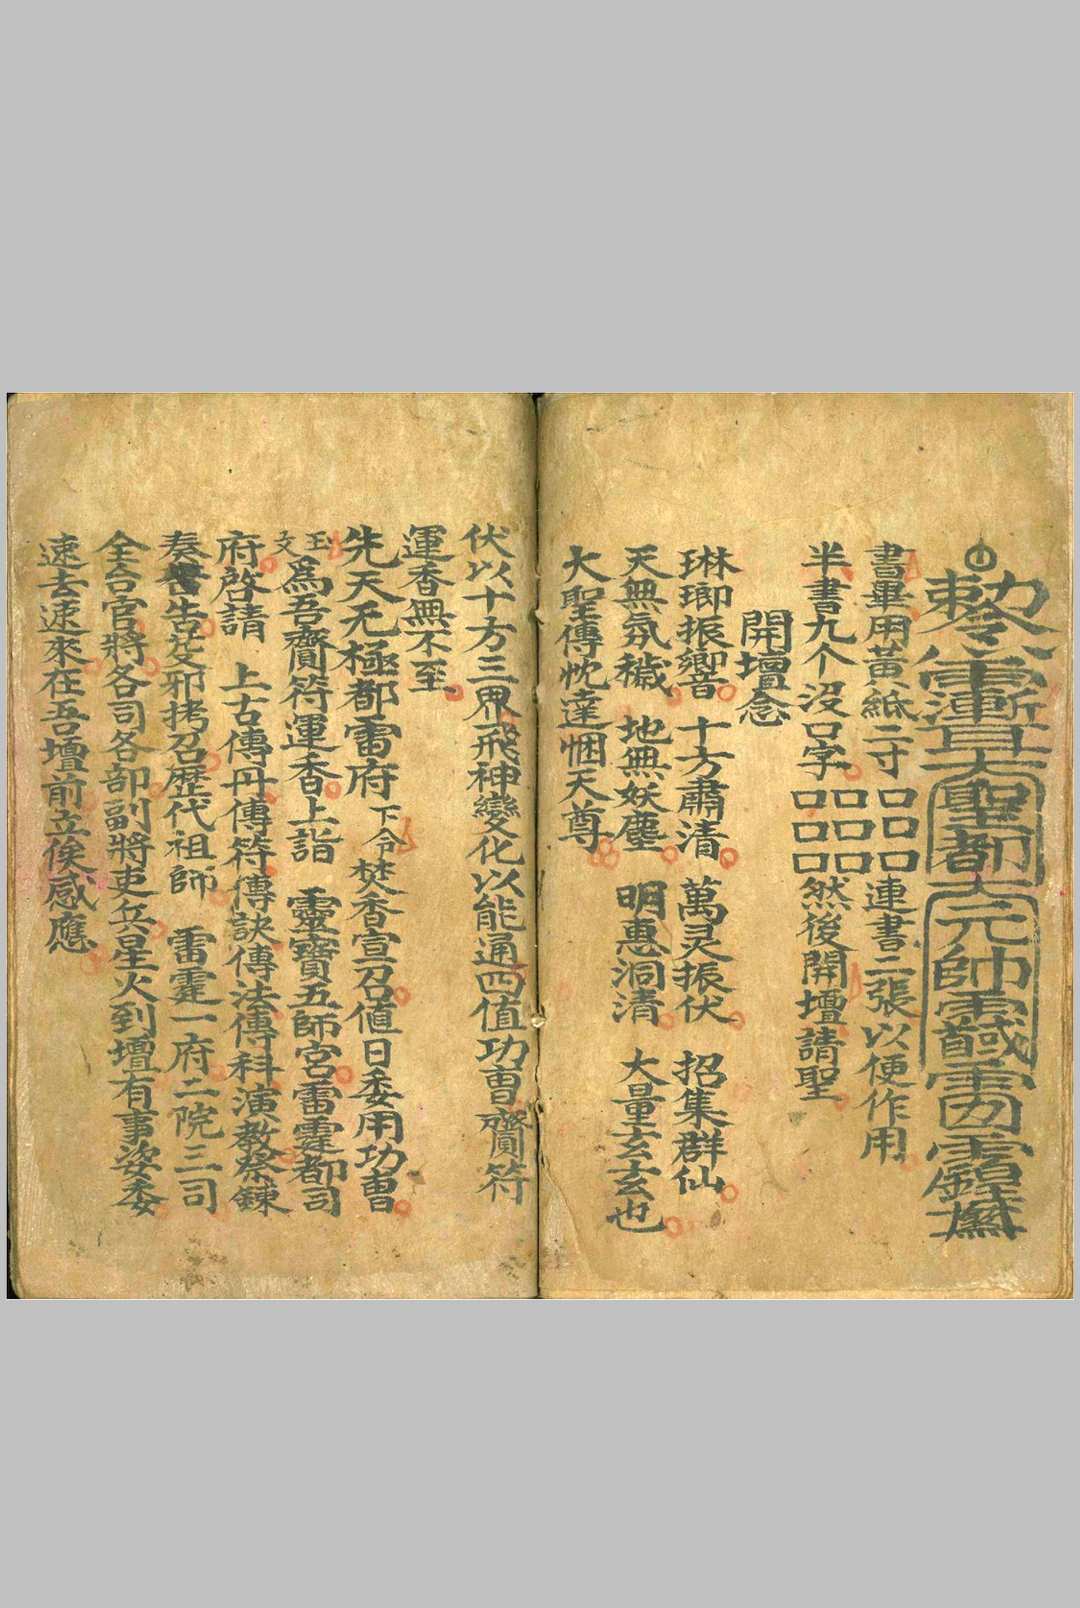 勅令
大聖都大元帥
書畢用黃紙二寸口口口連書二張以便作用
半書九个沒口字口口口口口口然後開壇請聖
開壇念
琳瑯振響 十方肅清 萬灵振伏 招集群仙
天無氛穢 地無妖塵 明惠洞清 大量玄玄也
大聖傳忱達悃天尊
伏以十方三界飛神變化以能通四值功曹齎符
運香無不至
先天无極都雷府下令焚香宣召值日委用功曹
玉文為吾齎符運香上詣 靈寶五師宮雷霆都司
府啓請 上古傳丹傳符傳訣傳法傳科演教祭鍊
奏告芟邪拷召歷代祖師 雷霆一府二院三司
全合官將各司各部副將吏兵星火到壇有事姿委
速去速來在吾壇前立俟感應